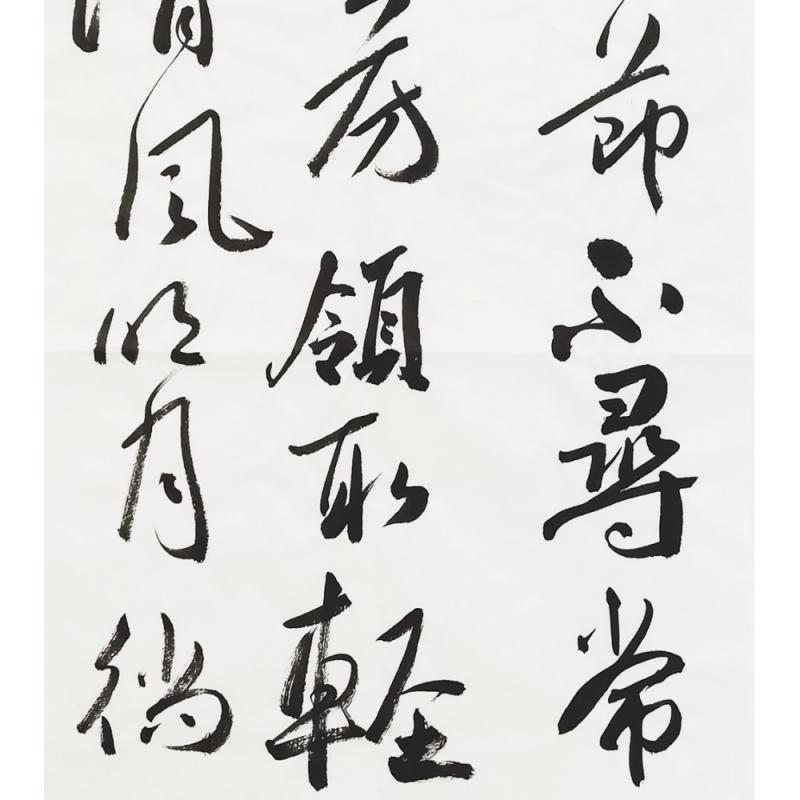 節不尋常
芳領取輕
清風明月徜